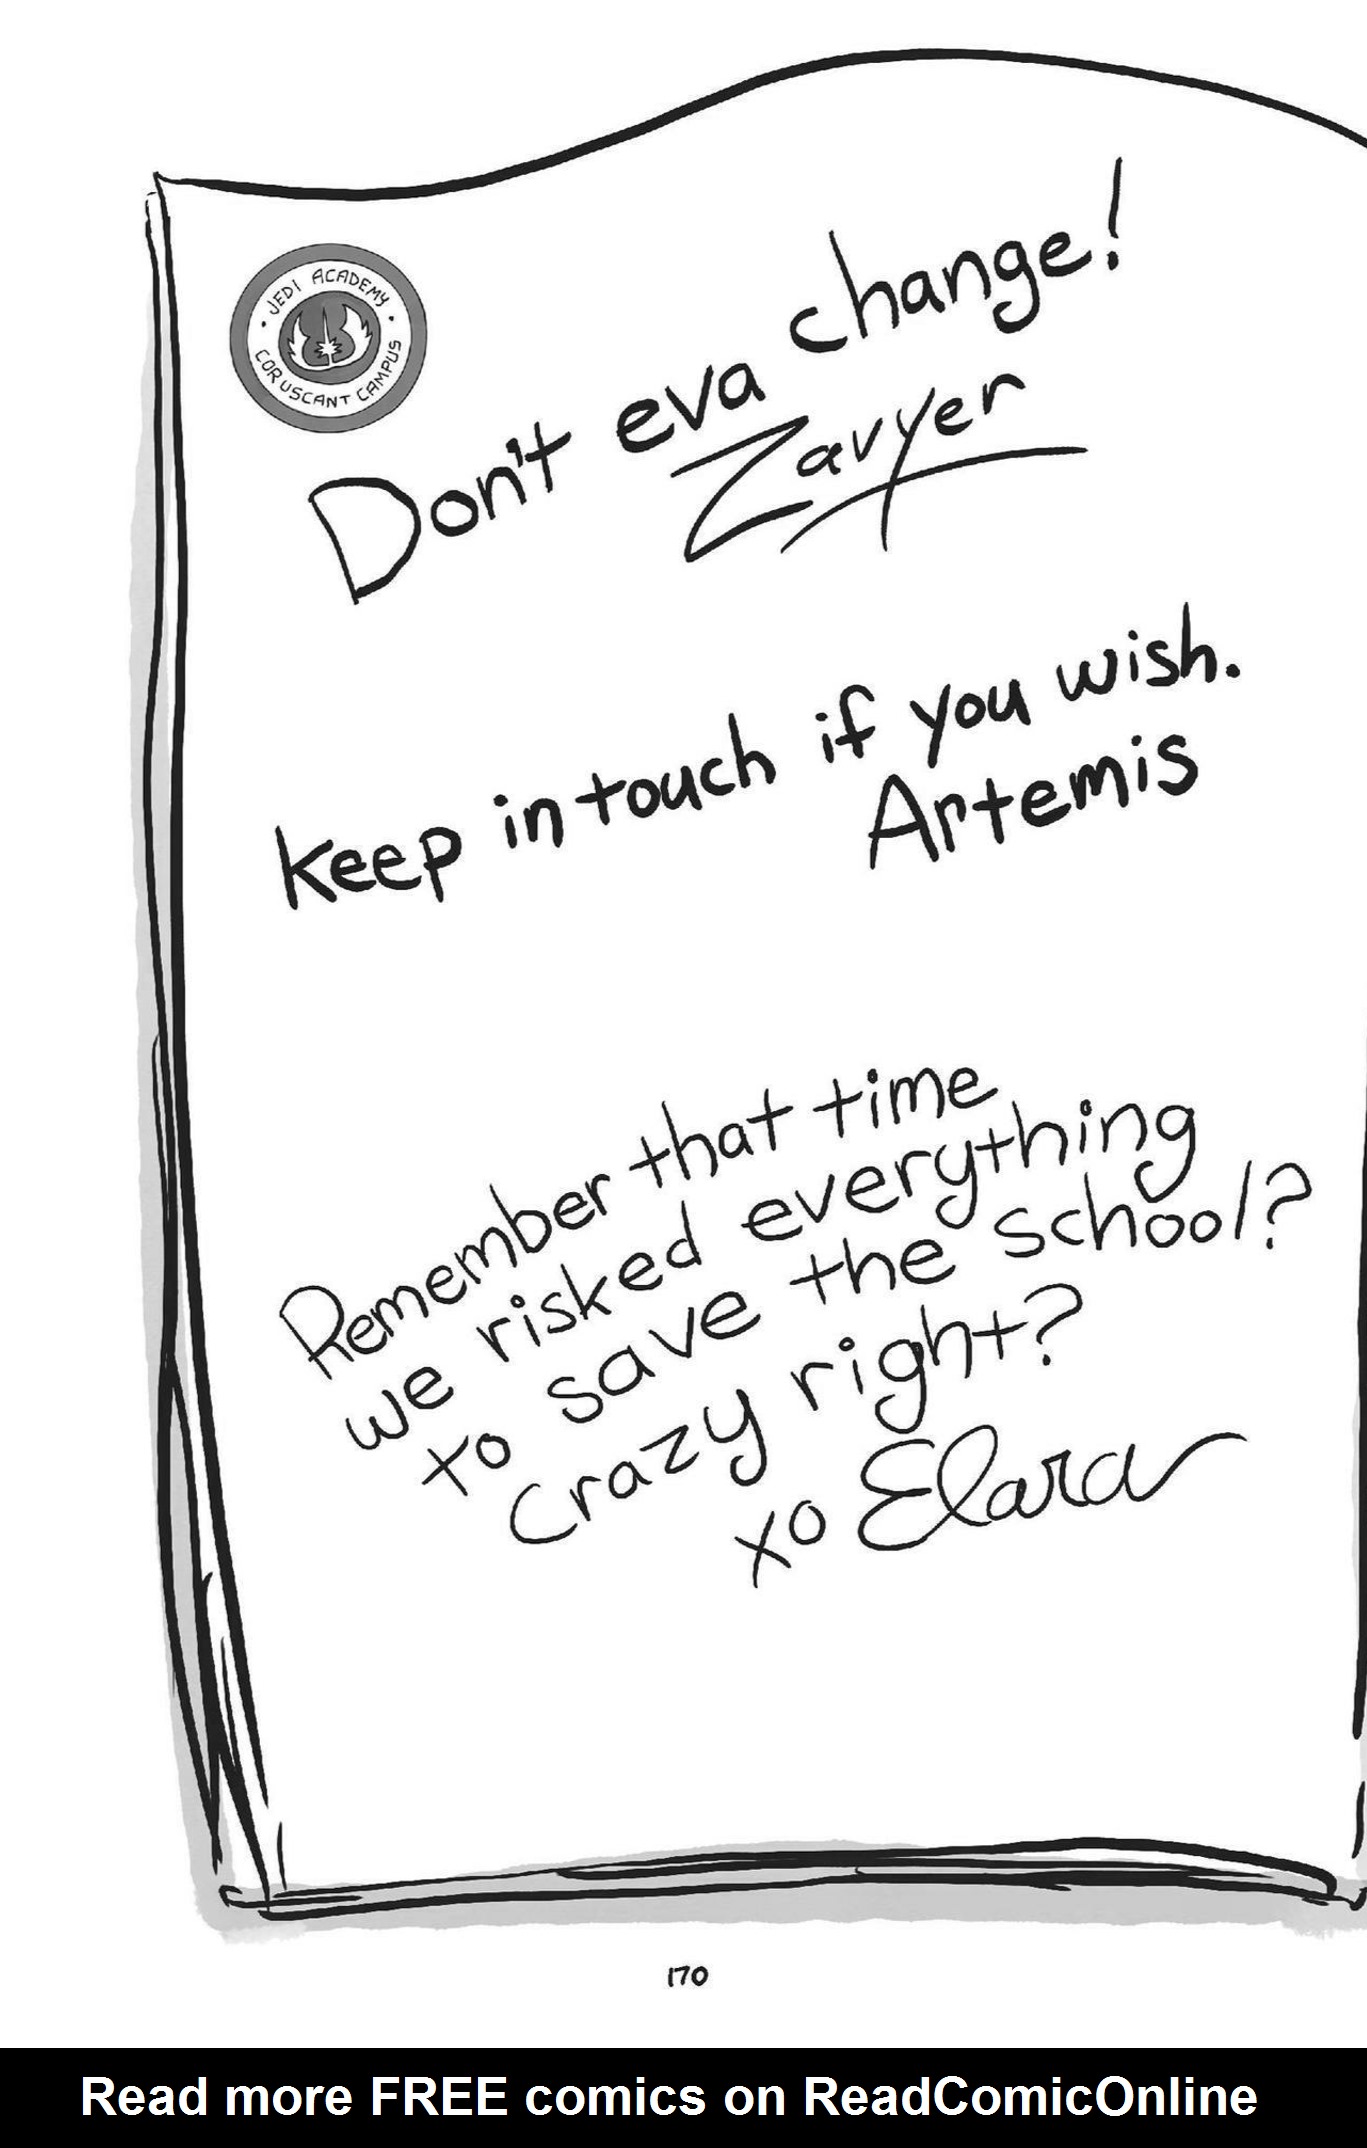 JEDI ACADEMY
CORUSCANT CAMPUS
Don't eva change!
Zavyer
Keep in touch if you wish.
Artemis
Remember that time
we risked everything
to save the school?
Crazy right?
xo Elara
170
Read more FREE comics on ReadComicOnline